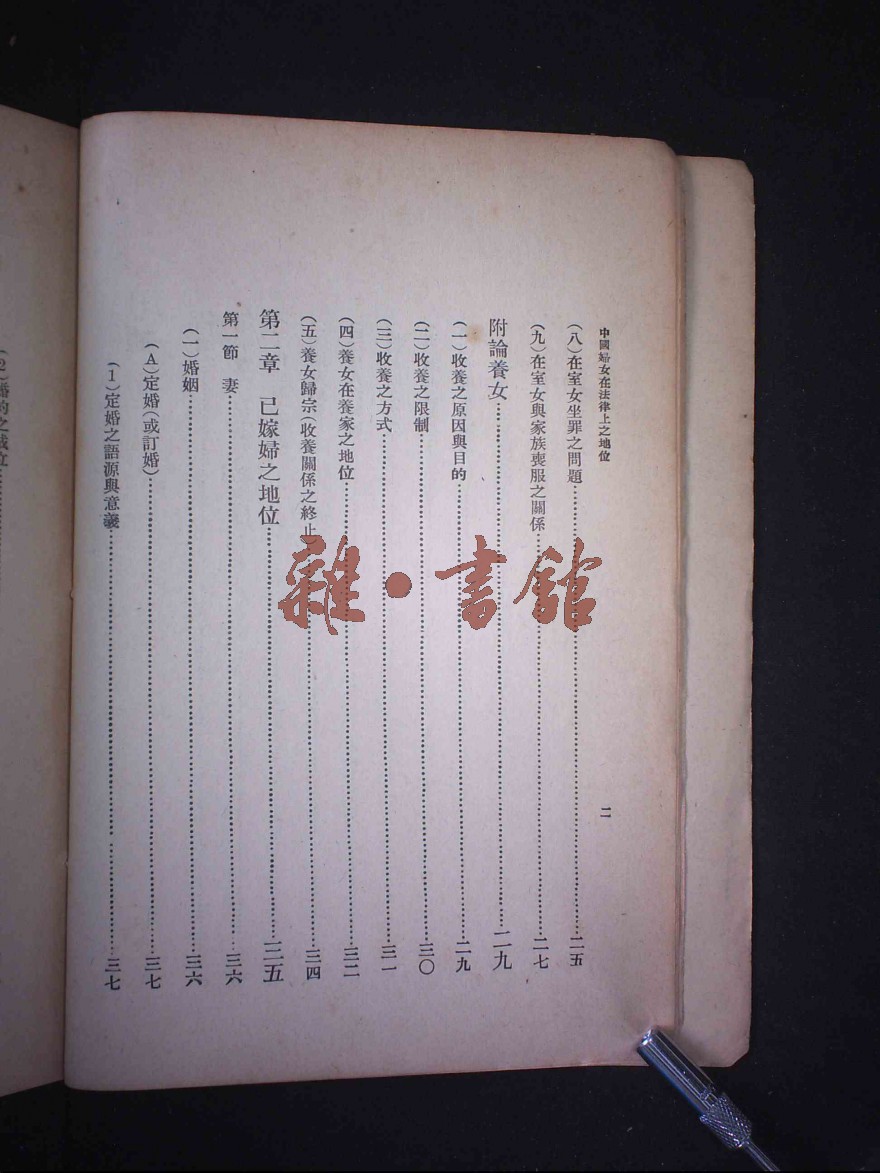 中國婦女在法律上之地位
二
（八）在室女坐罪之問題……二五
（九）在室女與家族喪服之關係……二七
附論養女……二九
（一）收養之原因與目的……二九
（二）收養之限制……三〇
（三）收養之方式……三一
（四）養女在養家之地位……三二
（五）養女歸宗（收養關係之終止……三四
第二章　已嫁婦之地位……三五
第一節　妻……三六
（一）婚姻……三六
（A）定婚（或訂婚）……三七
（1）定婚之語源與意義……三七
（2）婚約之成立……
雜・書館